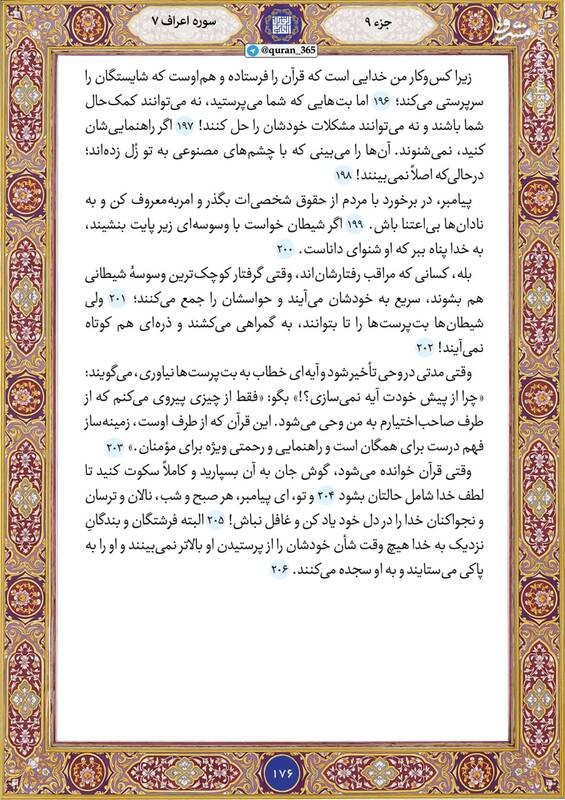 جزء ۹
سوره اعراف ۷
@quran_365
مشرق
زیرا کس‌وکار من خدایی است که قرآن را فرستاده و هم‌اوست که شایستگان را
سرپرستی می‌کند؛ ۱۹۶ اما بت‌هایی که شما می‌پرستید، نه می‌توانند کمک‌حال
شما باشند و نه می‌توانند مشکلات خودشان را حل کنند! ۱۹۷ اگر راهنمایی‌شان
کنید، نمی‌شنوند. آن‌ها را می‌بینی که با چشم‌های مصنوعی به تو زُل زده‌اند؛
درحالی‌که اصلاً نمی‌بینند! ۱۹۸
پیامبر، در برخورد با مردم از حقوق شخصی‌ات بگذر و امربه‌معروف کن و به
نادان‌ها بی‌اعتنا باش. ۱۹۹ اگر شیطان خواست با وسوسه‌ای زیر پایت بنشیند،
به خدا پناه ببر که او شنوای داناست. ۲۰۰
بله، کسانی که مراقب رفتارشان‌اند، وقتی گرفتار کوچک‌ترین وسوسهٔ شیطانی
هم بشوند، سریع به خودشان می‌آیند و حواسشان را جمع می‌کنند؛ ۲۰۱ ولی
شیطان‌ها بت‌پرست‌ها را تا بتوانند، به گمراهی می‌کشند و ذره‌ای هم کوتاه
نمی‌آیند! ۲۰۲
وقتی مدتی در وحی تأخیر شود و آیه‌ای خطاب به بت‌پرست‌ها نیاوری، می‌گویند:
«چرا از پیش خودت آیه نمی‌سازی؟!» بگو: «فقط از چیزی پیروی می‌کنم که از
طرف صاحب‌اختیارم به من وحی می‌شود. این قرآن که از طرف اوست، زمینه‌ساز
فهم درست برای همگان است و راهنمایی و رحمتی ویژه برای مؤمنان.» ۲۰۳
وقتی قرآن خوانده می‌شود، گوش جان به آن بسپارید و کاملاً سکوت کنید تا
لطف خدا شامل حالتان بشود ۲۰۴ و تو، ای پیامبر، هر صبح و شب، نالان و ترسان
و نجواکنان خدا را در دل خود یاد کن و غافل نباش! ۲۰۵ البته فرشتگان و بندگانِ
نزدیک به خدا هیچ وقت شأن خودشان را از پرستیدن او بالاتر نمی‌بینند و او را به
پاکی می‌ستایند و به او سجده می‌کنند. ۲۰۶
۱۷۶